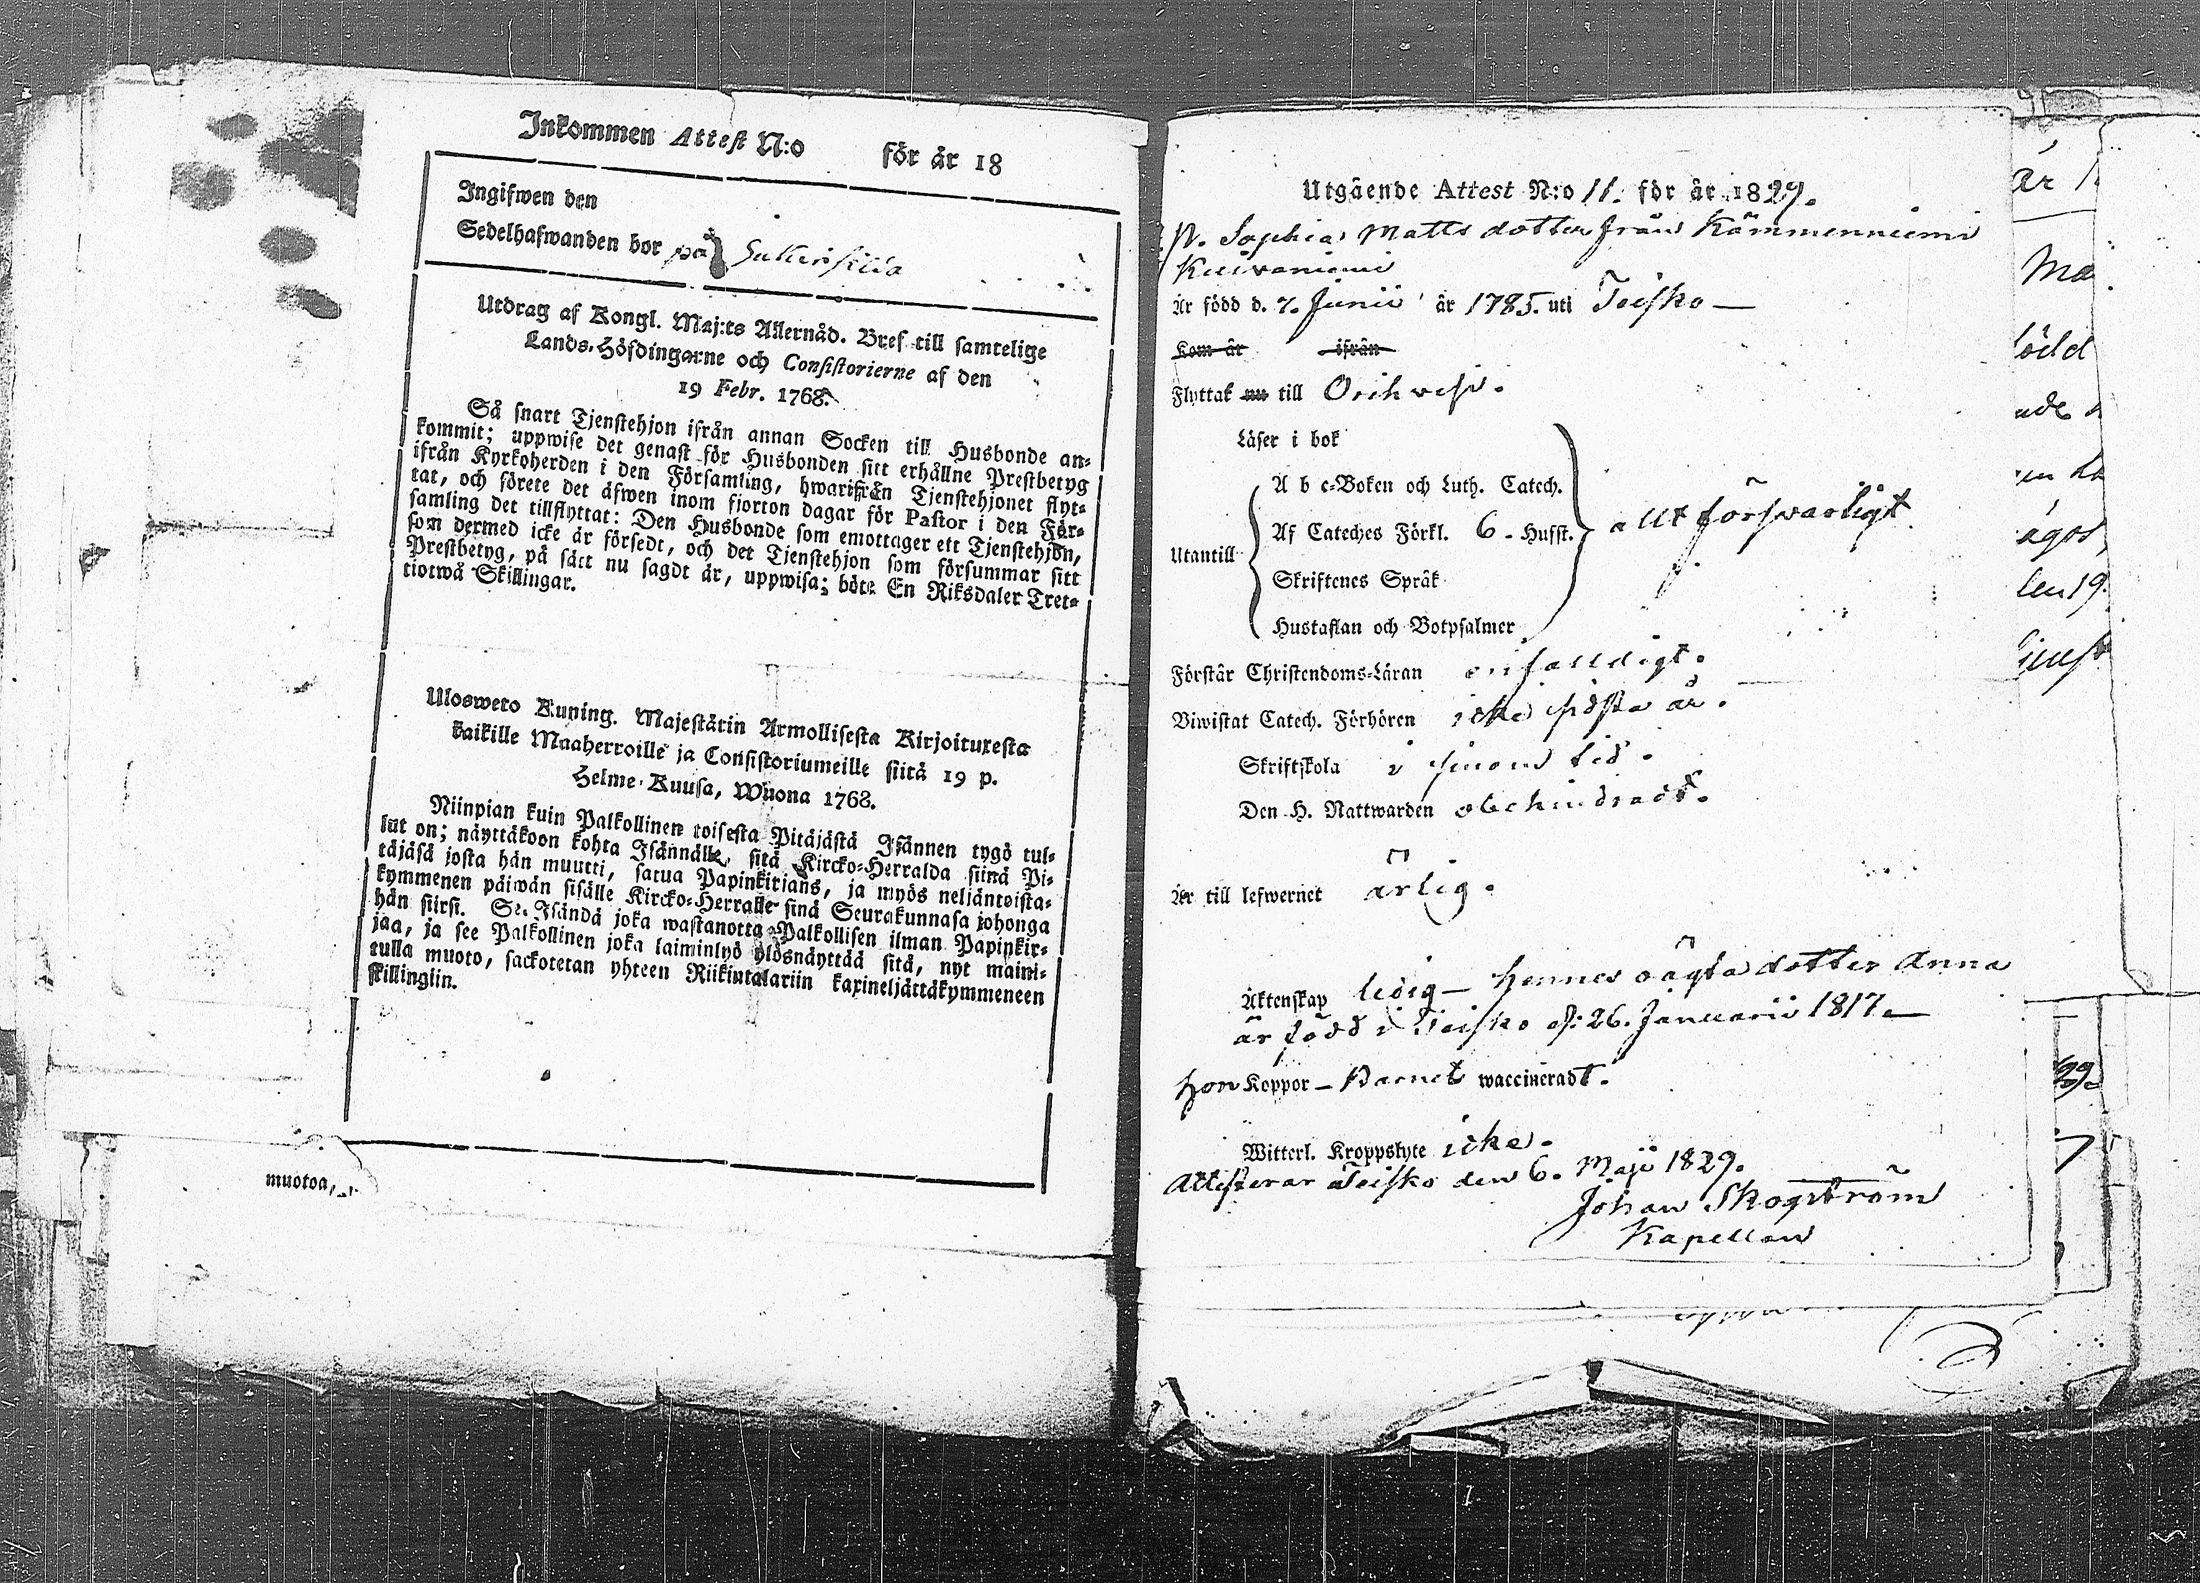 Inkommen Attest N:o för år 18
Ingifwen den
Sedelhafwanden bor på
Utdrag af Kongl. Maj:ts Allernåd. Bref till samtelige
Lands-Höfdingarne och Consistorierne af den
19 Febr. 1768.
Så snart Tjenstehjon ifrån annan Socken till Husbonde an-
kommit; uppwise det genast för Husbonden sitt erhållne Prestbetyg
ifrån Kyrkoherden i den Församling, hwarifrån Tjenstehjonet flyt-
tat, och förete det äfwen inom fjorton dagar för Pastor i den För-
samling det tillflyttat: Den Husbonde som emottager ett Tjenstehjon,
som dermed icke är försedt, och det Tjenstehjon som försummar sitt
Prestbetyg, på sätt nu sagdt är, uppwisa; böte En Riksdaler Tret-
tiotwå Skillingar.
Ulosweto Kuning. Majestätin Armollisesta Kirjoituxesta
kaikille Maaherroille ja Consistoriumeille siitä 19 p.
Helme-Kuusa, Wuona 1768.
Niinpian kuin Palkollinen toisesta Pitäjästä Isännen tygö tul-
lut on; näyttäkoon kohta Isännälle, sitä Kircko-Herralda siinä Pi-
täjäsä josta hän muutti, satua Papinkirjans, ja myös neljäntoista-
kymmenen päiwän sisälle Kircko-Herralle sinä Seurakunnasa johonga
hän siirsi. Se Isändä joka wastanotta Palkollisen ilman Papinkir-
jaa, ja see Palkollinen joka laiminlyö ylösnäyttää sitä, nyt maini-
tulla muoto, sackotetan yhteen Riikintalariin kaxineljättäkymmeneen
skillingiin.
muotoa,
Utgående Attest N:o 11. för år 1829.
P. Sophia Matts dotter från Kämmenniemi
Kuivaniemi
Är född d. 7. Junii år 1785. uti Teisko
Kom år ifrån
Flyttat nu till Orihvesi.
Läser i bok
A b c-Boken och Luth. Catech.
Af Cateches Förkl. 6 - Hufst. allt försvarligt
Utantill
Skriftenes Språk
Hustaflan och Botpsalmer
Förstår Christendoms-Läran enfalldigt.
Biwistat Catech. Förhören icke sidsta år.
Skriftskola i sinom tid.
Den H. Nattwarden obehindradt.
Är till lefwernet ärlig.
Äktenskap ledig - hennes oägta dotter Anna
är född i Teisko d: 26. Januarii 1817
hon Koppor - Barnet waccineradt.
Witterl. Kroppslyte icke.
Attesterar Teisko den 6. Maji 1829.
Johan Skogström
Kapellan